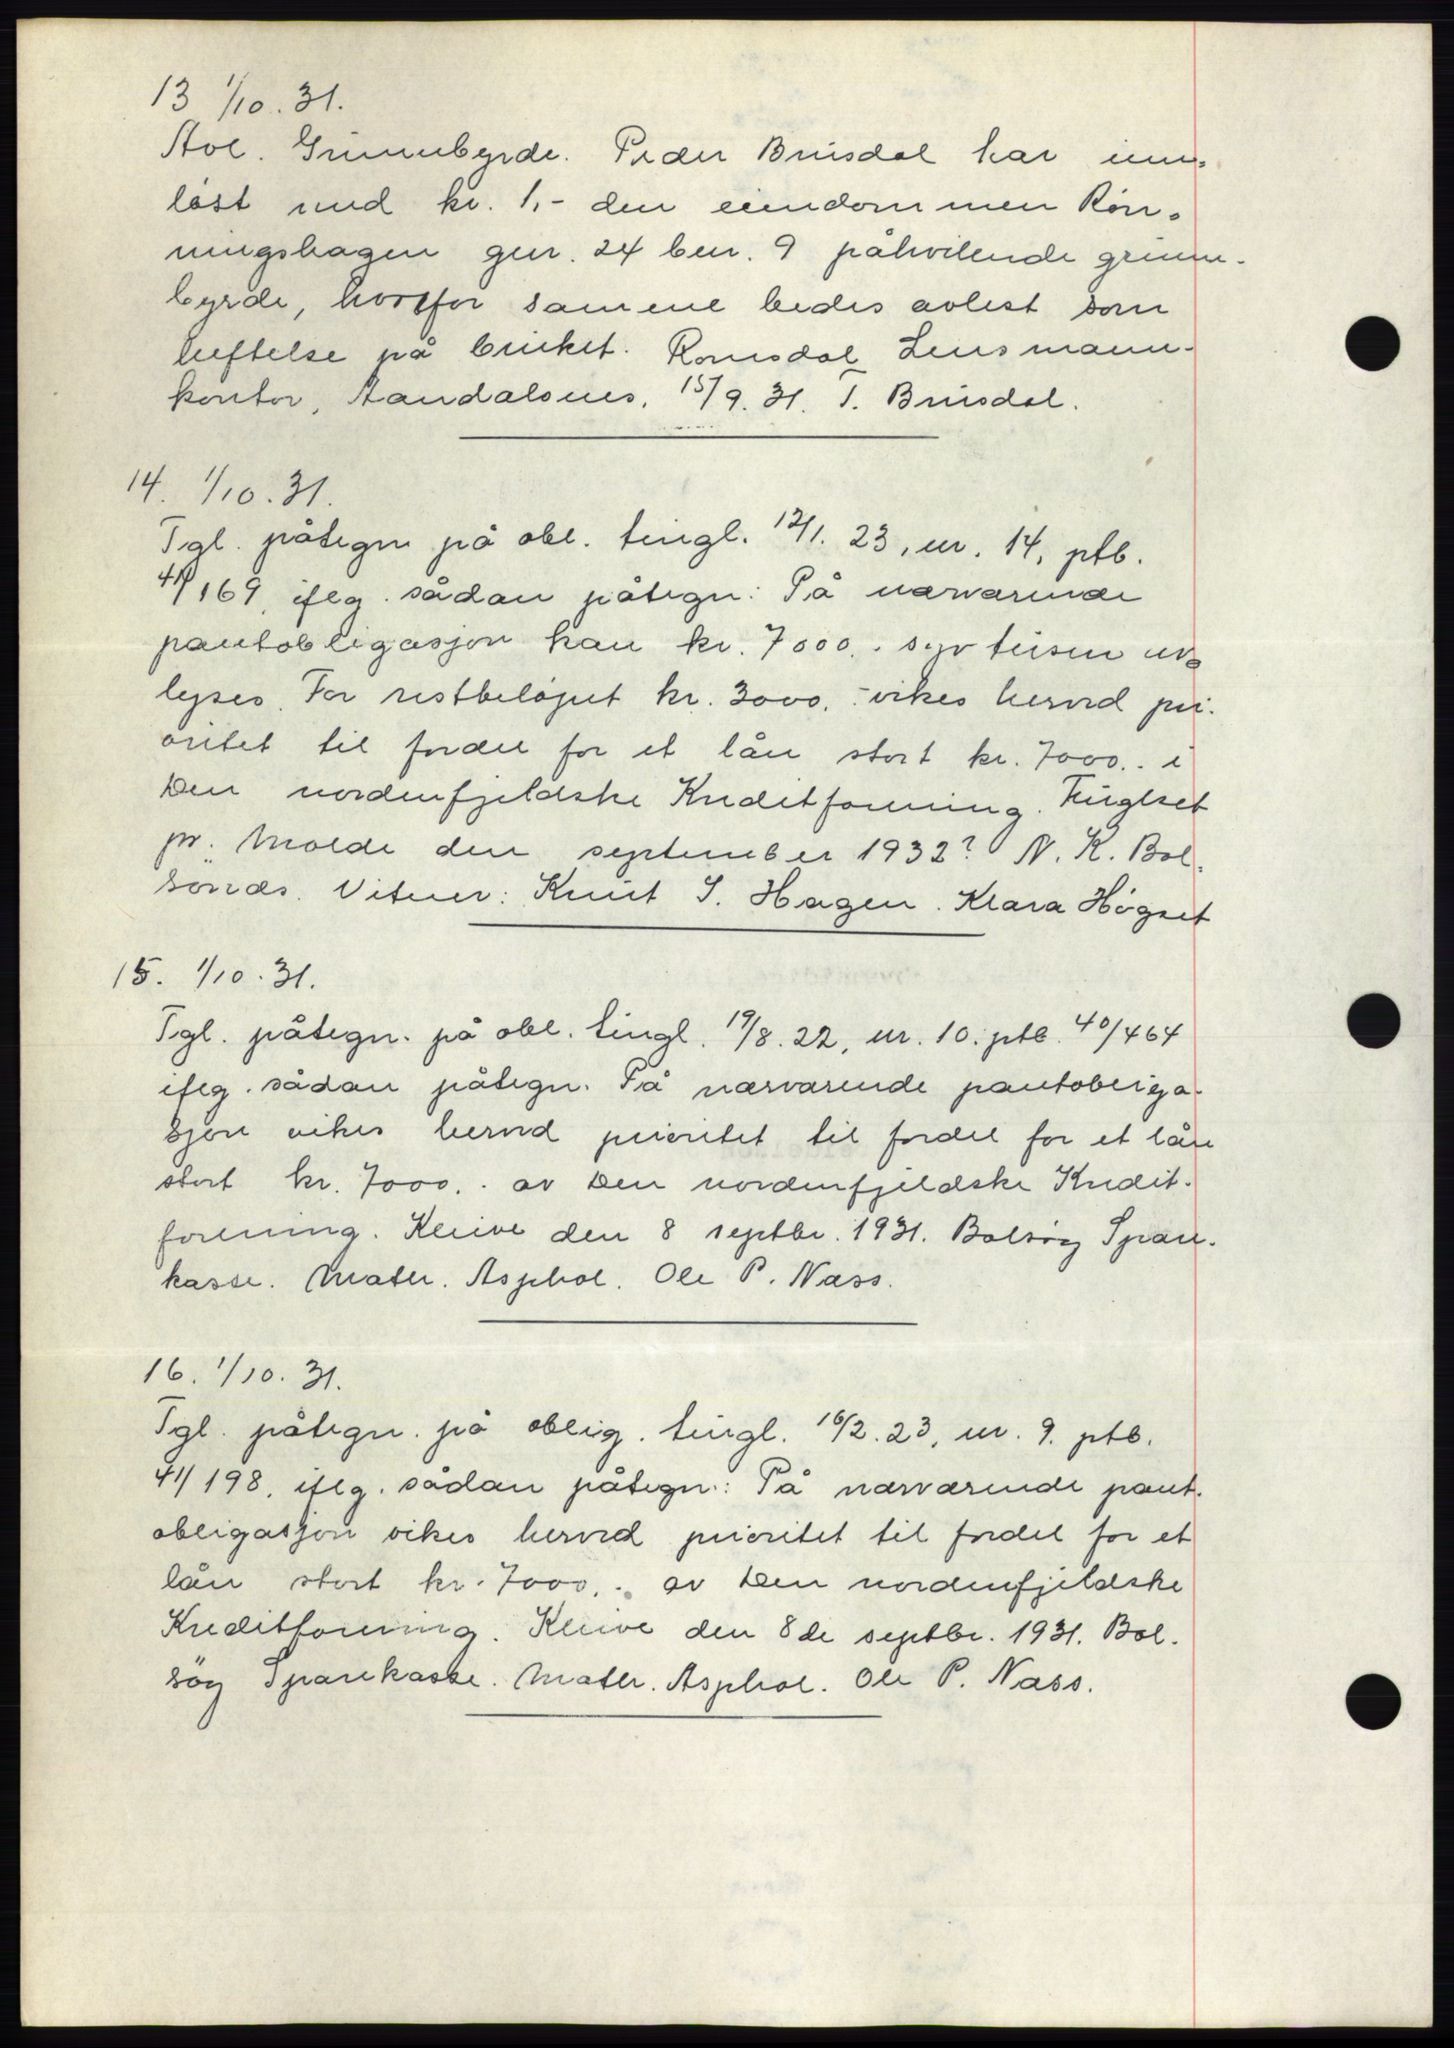 13 1/10. 31.
Avl. Grunnbyrde. Peder Brusdal har inn-
løst med kr. 1,- den eiendommen Røn-
ningshagen gnr. 24 bnr. 9 påhvilende grunn-
byrde, hvorfor samme bedes avlest som
heftelse på bruket. Romsdal Lensmann-
kontor, Aandalsnes, 15/9. 31. T. Brusdal.
14. 1/10. 31.
Tgl. påtegn på obl. tingl. 12/1. 23, nr. 14, ptb.
41/169, iflg. sådan påtegn: På nærværende
pantobligasjon kan kr. 7000.- syv tusen av-
lyses. For restbeløpet kr. 3000.- vikes herved pri-
oritet til fordel for et lån stort kr. 7000.- i
Den nordenfjeldske Kreditforening. Fuglset
pr. Molde den september 1932? N. K. Bol-
sönds. Vitner: Knut S. Hagen. Klara Høgset
15. 1/10. 31.
Tgl. påtegn. på obl. tingl. 19/8. 22, nr. 10. ptb. 40/464
iflg. sådan påtegn. På nærværende pantobliga-
sjon vikes herved prioritet til fordel for et lån
stort kr. 7000.- av Den nordenfjeldske Kredit-
forening. Kleive den 8 septbr. 1931. Bolsøy Spare-
kasse. Math. Asphol. Ole P. Næss.
16. 1/10. 31.
Tgl. påtegn. på oblig. tingl. 16/2. 23, nr. 9. ptb.
41/198, iflg. sådan påtegn.: På nærværende pant-
obligasjon vikes herved prioritet til fordel for et
lån stort kr. 7000.- av Den nordenfjeldske
Kreditforening. Kleive den 8de septbr. 1931. Bol-
söy Sparekasse. Math. Asphol. Ole P. Næss.